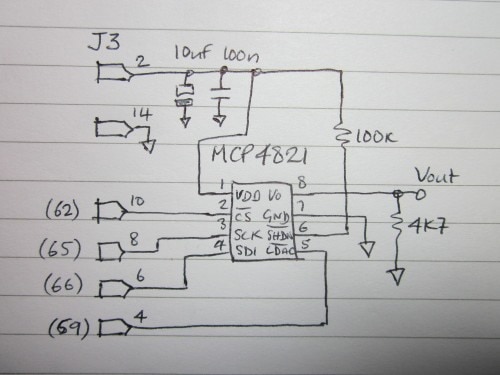 J3
2
10uf 100n
14
100K
MCP4821
Vout
1 VDD VO 8
(62) 10 2 CS GND 7
(65) 8 3 SCK SHDN 6
4K7
4 SDI LDAC 5
(66) 6
(69) 4